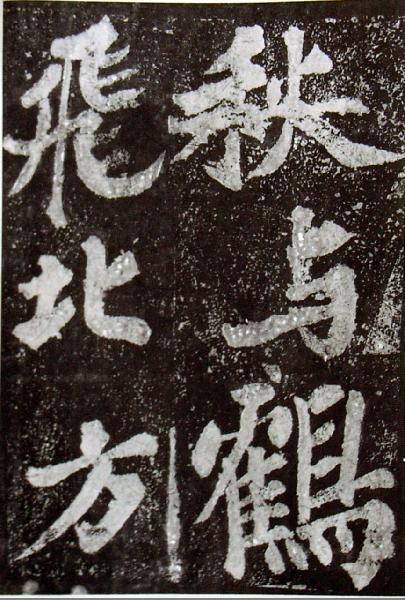 秋与鶴
飛北方